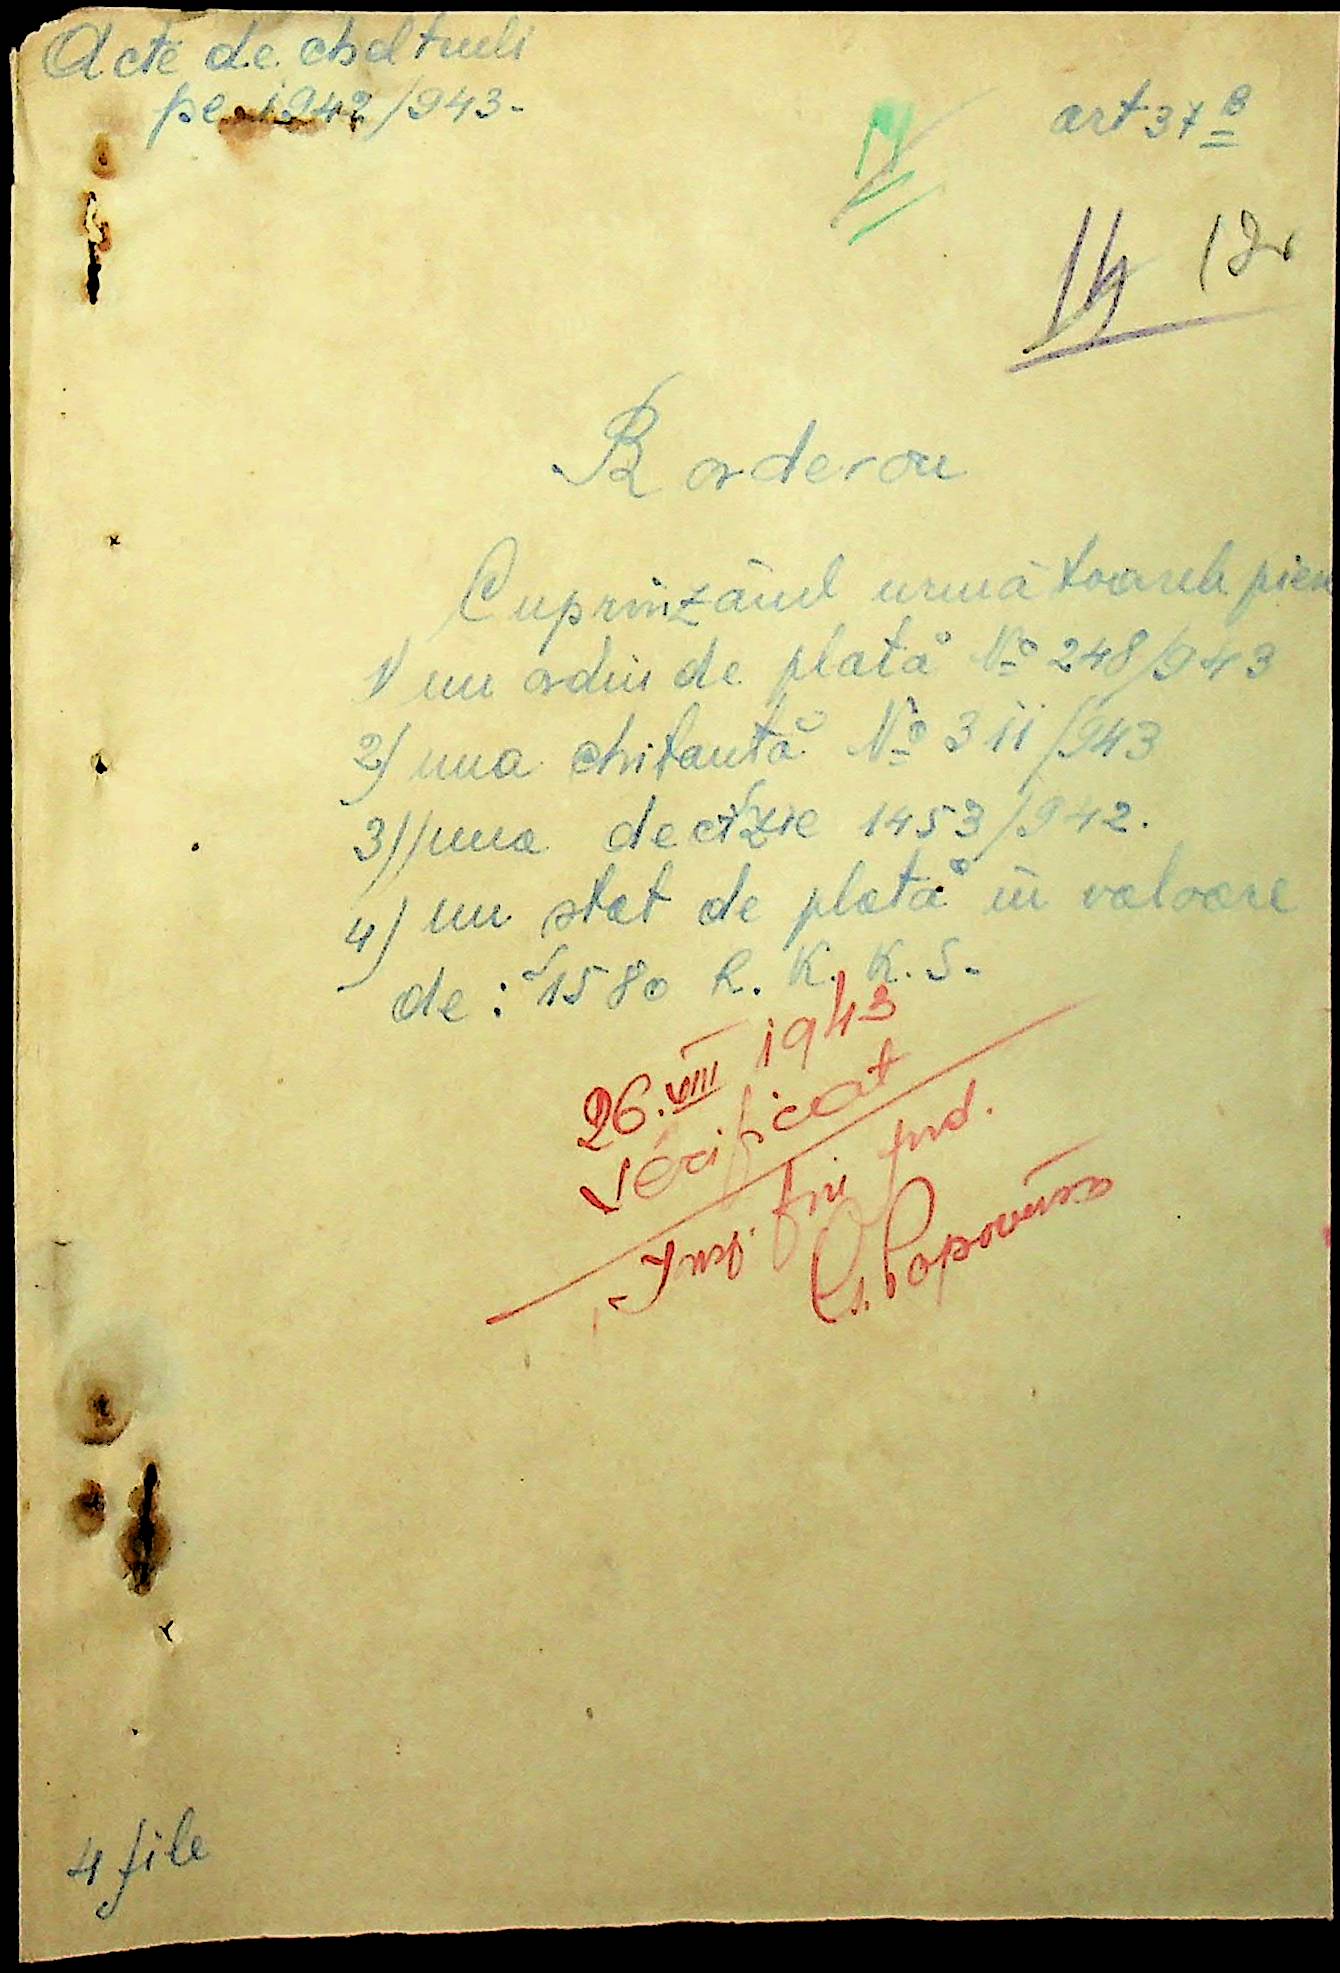 Acte de cheltueli
pe 1942/943-
art 37 B
14
Borderou
Cuprinzând următoarele piese
1) un ordin de plată No 248/943
2) una chitanță No 311/943
3) una decizie 1453/942.
4) un stat de plată în valoare
de : 1580 R. K. K. S.
26.VIII 1943
Verificat
Insp. fin jud.
4 file